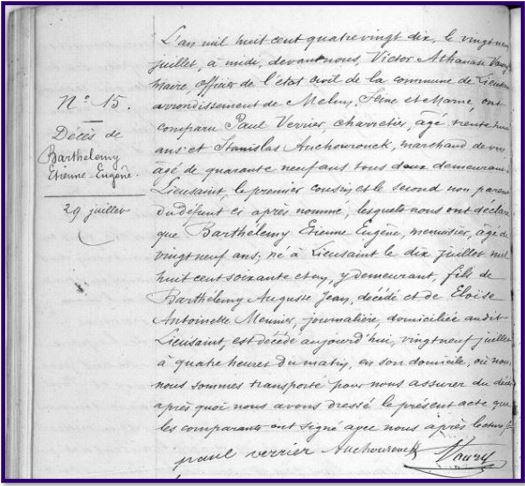 N° 15.
Décès de
Barthélemy
Etienne-Eugène.
29 juillet
L'an mil huit cent quatre vingt dix, le vingt neuf
juillet, à midi, devant nous, Victor Athanase
maire, officier de l'état civil de la commune de Lieusaint
arrondissement de Melun, Seine et Marne, ont
comparu Paul Verrier, charretier, âgé trente
ans et Stanislas Auchourouck, marchand de vins
âgé de quarante neuf ans tous deux demeurant
Lieusaint, le premier cousin et le second non parent
du défunt ci après nommé, lesquels nous ont déclaré
que Barthélemy Etienne Eugène, menuisier, âgé de
vingt neuf ans, né à Lieusaint le dix juillet mil
huit cent soixante et un, y demeurant, fils de
Barthélemy Auguste Jean, décédé et de Eloïse
Antoinette Meunier, journalière, domiciliée audit
Lieusaint, est décédé aujourd'hui, vingt neuf juillet
à quatre heures du matin, en son domicile, où nous
nous sommes transporté pour nous assurer du décès
après quoi nous avons dressé le présent acte que
les comparants ont signé avec nous après lecture
paul verrier Auchourouck